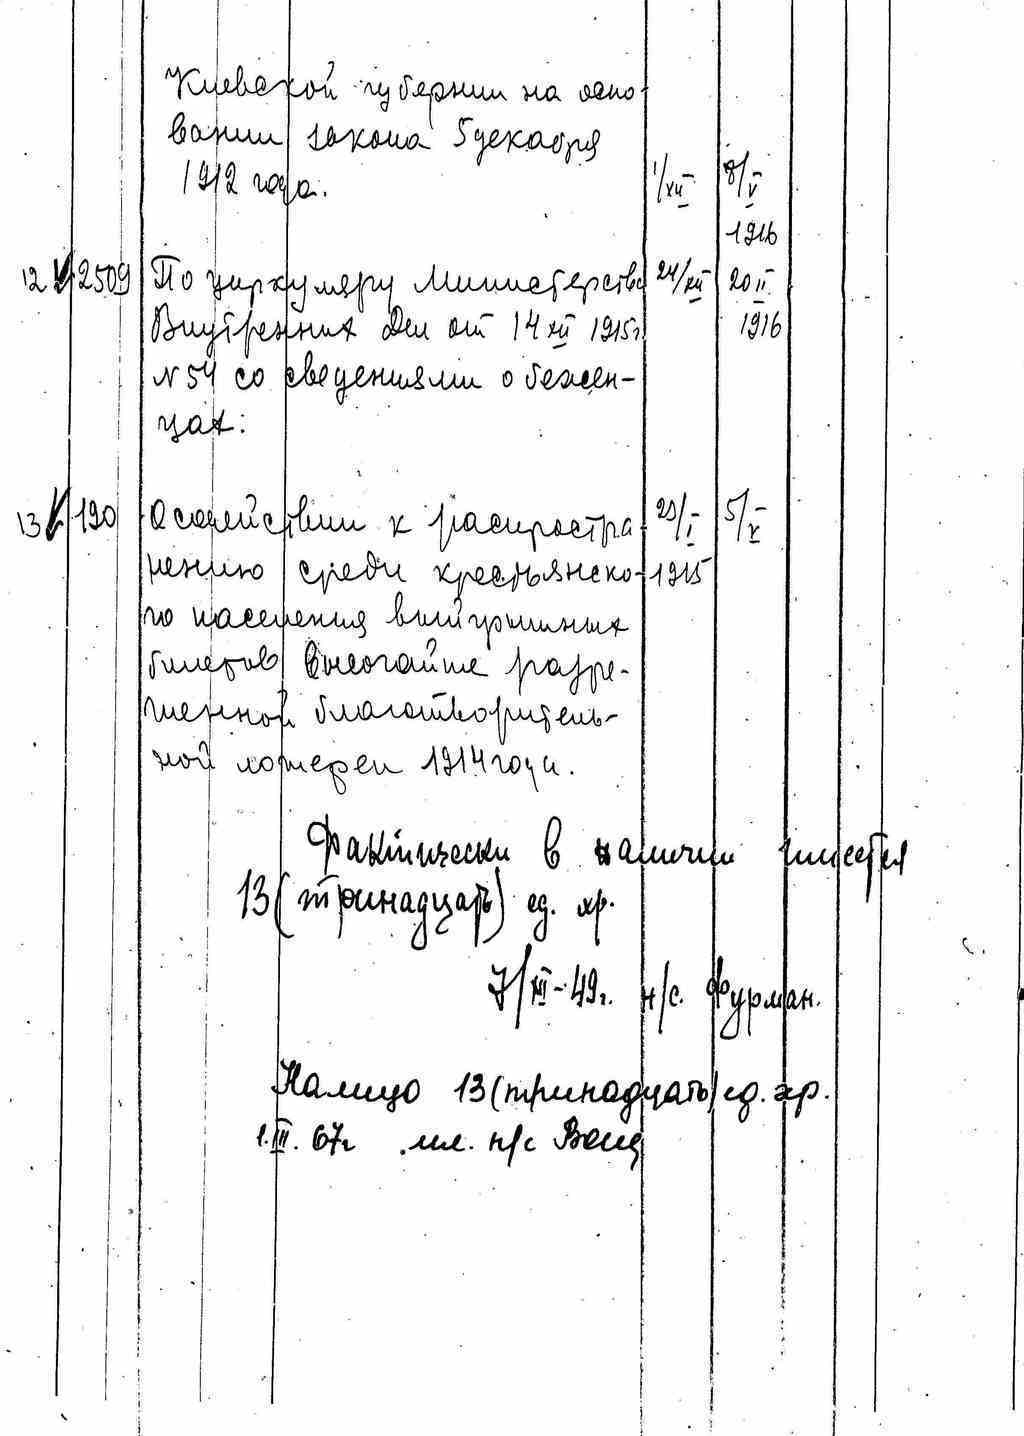 Киевской губернии на осно-
вании закона 5 декабря
1912 года. 1/XII 8/V
1916
12 2509 По циркуляру Министерства 24/XII 20 II
Внутренних Дел от 14 XII 1915г. 1916
N 54 со сведениями о бежен-
цах:
13 190 О содействии к распростра- 29/I 5/X
нению среди крестьянско- 1915
го населения выигрышных
билетов Высочайше разре-
шенной благотворитель-
ной лотереи 1914 года.
Фактически в наличии имеется
13 (тринадцать) ед. хр.
7/XII-49г. н/с. Фурман.
Налицо 13 (тринадцать) ед. хр.
1.III.67г мл. н/с